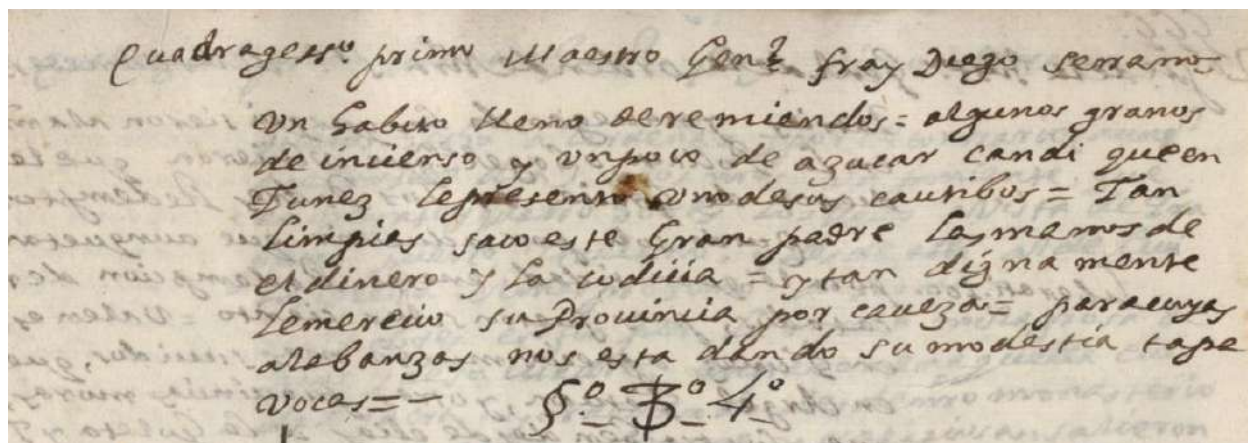 Quadragessº. primo Maestro Genl. fray Diego serrano
vn habito lleno de remiendos = algunos granos
de incienso y vn poco de azucar candi que en
Tunez le presento vno de sus cautibos = Tan
limpias saco este Gran padre las manos de
el dinero y la codicia = y tan dignamente
le merecio su Prouincia por caueza = para cuyas
alabanzas nos esta dando su modestia tapa
vocas = - §º. 3º. 4º.